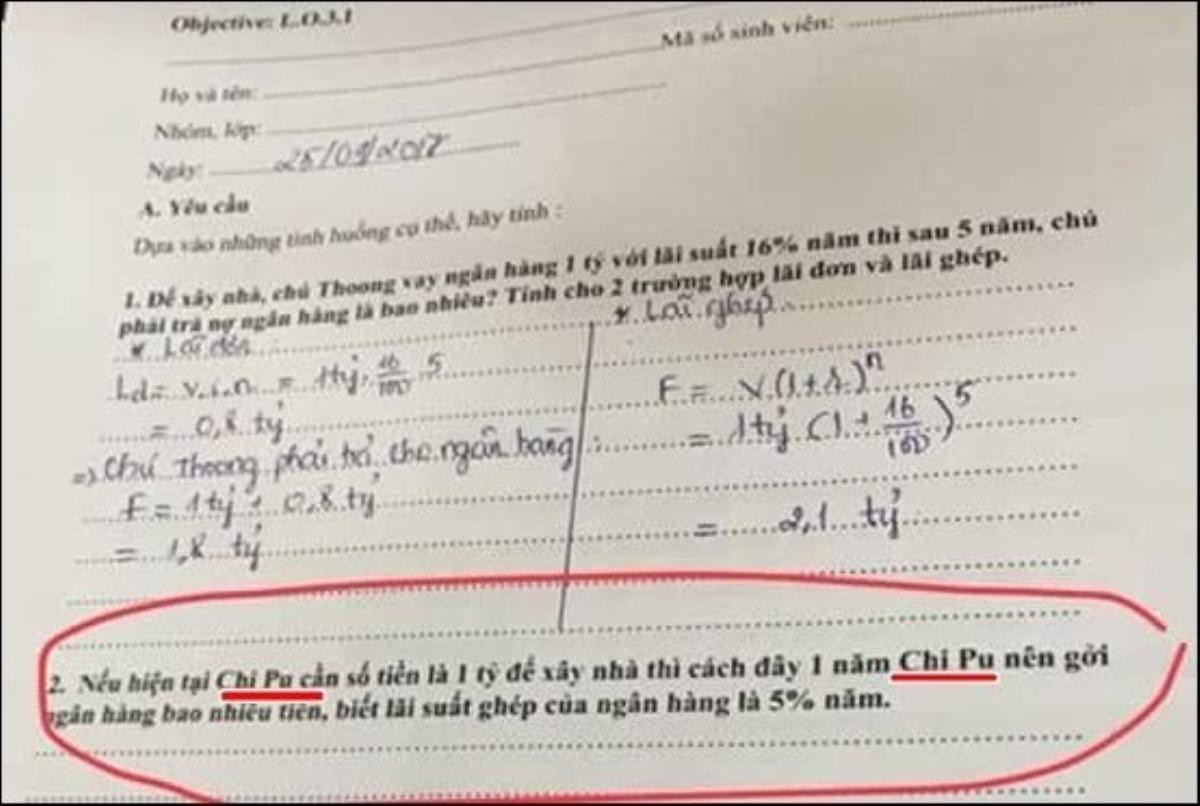 Objective: L.O.3.1
Mã số sinh viên:
Họ và tên:
Nhóm, lớp:
Ngày: 25/09/2017
A. Yêu cầu
Dựa vào những tình huống cụ thể, hãy tính :
1. Để xây nhà, chú Thoong vay ngân hàng 1 tỷ với lãi suất 16% năm thì sau 5 năm, chú
phải trả nợ ngân hàng là bao nhiêu? Tính cho 2 trường hợp lãi đơn và lãi ghép.
* Lãi đơn
Ld = v.i.n = 1 tỷ. 16/100 .5
= 0,8 tỷ
=> Chú Thoong phải trả cho ngân hàng:
F = 1 tỷ + 0,8 tỷ
= 1,8 tỷ
* Lãi ghép
F = V.(1+i)^n
= 1 tỷ.(1 + 16/100)^5
= 2,1 tỷ
2. Nếu hiện tại Chi Pu cần số tiền là 1 tỷ để xây nhà thì cách đây 1 năm Chi Pu nên gởi
ngân hàng bao nhiêu tiền, biết lãi suất ghép của ngân hàng là 5% năm.